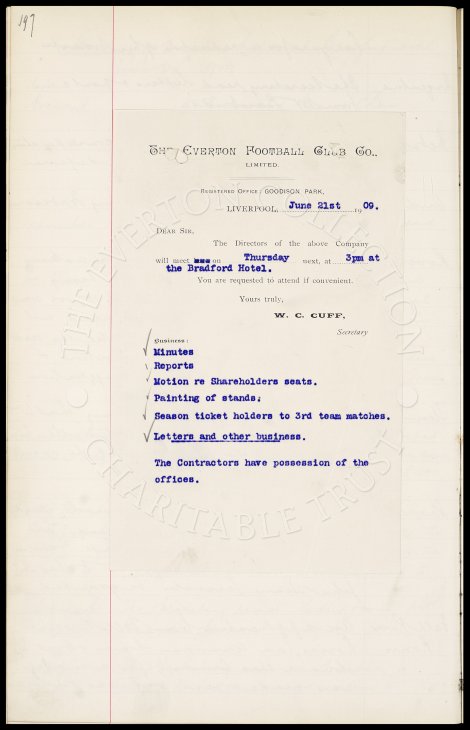 197
THE EVERTON FOOTBALL CLUB CO.,
LIMITED.
REGISTERED OFFICE: GOODISON PARK,
LIVERPOOL, June 21st 1909.
DEAR SIR,
The Directors of the above Company
will meet on Thursday next, at 3pm at
the Bradford Hotel.
You are requested to attend if convenient.
Yours truly,
W. C. CUFF,
Secretary
Business:
Minutes
Reports
Motion re Shareholders seats.
Painting of stands.
Season ticket holders to 3rd team matches.
Letters and other business.
The Contractors have possession of the
offices.
THE EVERTON COLLECTION
CHARITABLE TRUST